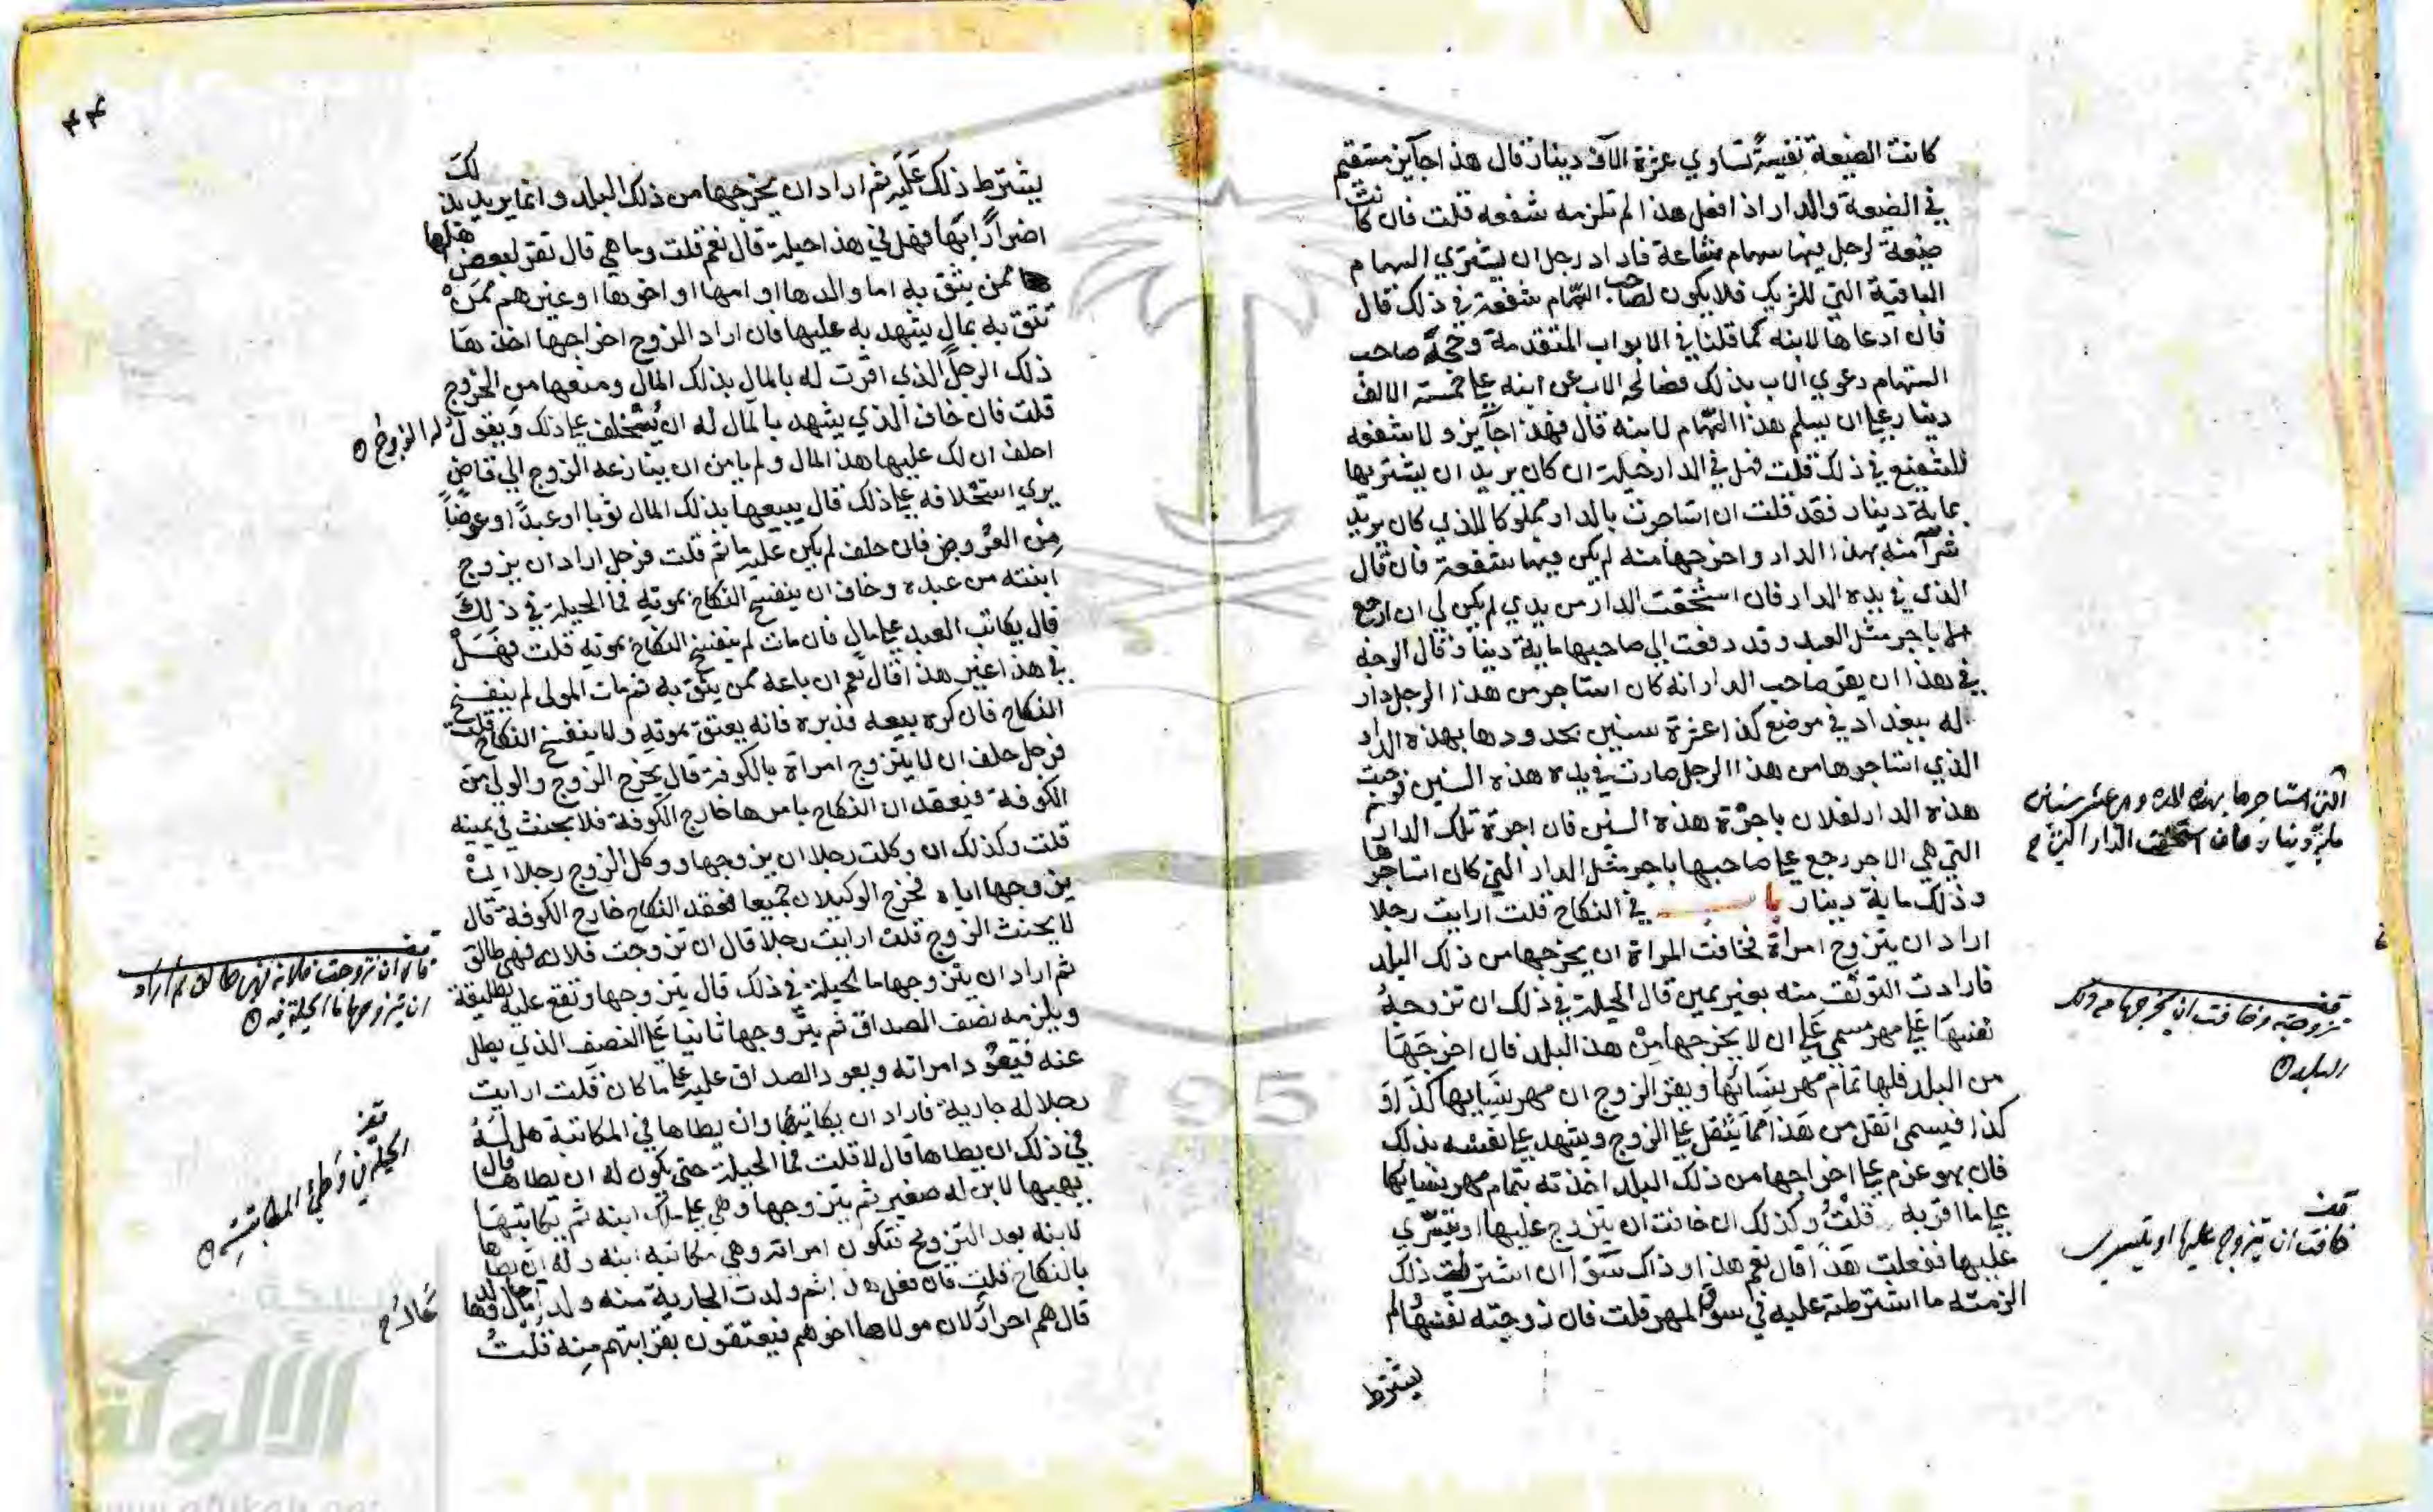 كانت الضيعة نفيسة تساوي عشرة الاف دينار قال هذا جايز مستقيم
في الضيعة والدار اذا فعل هذا لم تلزمه شفعه قلت فان كانت
ضيعة لرجل فيها سهام مشاعة فاراد رجل ان يشتري السهام
الباقية التي للشريك فلا يكون لصاحب السهام شفعة في ذلك قال
فان ادعاها لابنه كما قلنا في الابواب المتقدمة وحجة صاحب
السهام دعوي الاب بذلك فصالحه الاب عن ابنه علي خمسة الالف
دينار علي ان يسلم هذا السهام لابنه قال فهذا جايز ولا شفعه
للشفيع في ذلك قلت فهل في الدار حيلة ان كان يريد ان يشتريها
بماية دينار فقد قلت ان استاجرت بالدار مملوكا للذي كان يريد
شرآ منه بهذا الدار واخرجها منه لم يكن فيها شفعة فان قال
الذي في يده الدار فان استحقت الدار من يدي لم يكن لي ان ارجع
الا باجر مثل العبد وقد دفعت الي صاحبها ماية دينار قال الوجه
في هذا ان يقر صاحب الدار انه كان استاجر من هذا الرجل دار
له ببغداد في موضع كذا عشرة سنين بحدودها بهذه الدار
الذي استاجرها من هذا الرجل صارت في يده هذه السنين فوجبت
هذه الدار لفلان باجرة هذه السنين فان اجرة تلك الدار
التي هي الاجر رجع علي صاحبها باجر مثل الدار التي كان استاجرها
وذلك ماية دينار باب في النكاح قلت ارايت رجلا
اراد ان يتزوج امراة فخافت المراة ان يخرجها من ذلك البلد
فارادت التوثق منه بغير يمين قال الحيلة في ذلك ان تزوجه
نفسها علي مهر مسمي علي ان لا يخرجها من هذا البلد فان اخرجها
من البلد فلها تمام مهر نسائها ويقر الزوج ان مهر نسايها كذا و
كذا فيسمي اثقل من هذا مما يثقل علي الزوج ويشهد علي نفسه بذلك
فان هو عزم علي اخراجها من ذلك البلد اخذته بتمام مهر نسايها
علي ما اقر به قلت وكذلك ان خافت ان يتزوج عليها او يتسري
عليها ففعلت هذا قال نعم هذا وذاك سوآ ان اشترطت ذلك
الزمته ما اشترطته عليه في سوق المهر قلت فان زوجته نفسها ولم
يشترط
التي استاجرها بهذه الدار وهي عشر سنين
ماية دينار فان استحقت الدار التي
قف
تزوجته وخافت ان يخرجها من ذلك
البلد
قف
خافت ان يتزوج عليها او يتسري
٤٤
يشترط ذلك عليه ثم اراد ان يخرجها من ذلك البلد وانما يريد بذلك
اضرارا بها فهل في هذا حيلة قال نعم قلت وما هي قال تقر لبعض اهلها
ممن يثق به اما والدها او امها او اخوها او غيرهم ممن
تثق به بمال يشهد به عليها فان اراد الزوج اخراجها اخذها
ذلك الرجل الذي اقرت له بالمال بذلك المال ومنعها من الخروج
قلت فان خاف الذي يشهد بالمال له ان يستحلف علي ذلك ويقول له الزوج
احلف ان لك عليها هذا المال ولم يامن ان ينازعه الزوج الي قاض
يري استحلافه علي ذلك قال يبيعها بذلك المال ثوبا او عبدا او عوضا
من العروض فان حلف لم يكن عليه ماثم قلت فرجل اراد ان يزوج
ابنته من عبده وخاف ان ينفسخ النكاح بموته فما الحيلة في ذلك
قال يكاتب العبد علي مال فان مات لم ينفسخ النكاح بموته قلت فهل
في هذا غير هذا قال نعم ان باعه ممن يثق به ثم مات المولي لم ينفسخ
النكاح فان كره بيعه فدبره فانه يعتق بموته ولا ينفسخ النكاح قلت
فرجل حلف ان لا يتزوج امراة بالكوفة قال يخرج الزوج والولي من
الكوفة فيعقدان النكاح بامرها خارج الكوفة فلا يحنث في يمينه
قلت وكذلك ان وكلت رجلا ان يزوجها ووكل الزوج رجلا ان
يزوجها اياه فخرج الوكيلان جميعا فعقد النكاح خارج الكوفة قال
لا يحنث الزوج قلت ارايت رجلا قال ان تزوجت فلانه فهي طالق
ثم اراد ان يتزوجها ما الحيلة في ذلك قال يتزوجها وتقع عليه تطليقة
ويلزمه نصف الصداق ثم يتزوجها ثانيا علي النصف الذي بطل
عنه فتعود امراته ويعود الصداق عليه علي ما كان قلت ارايت
رجلا له جارية فاراد ان يكاتبها وان يطاها في المكاتبة هل له
في ذلك ان يطاها قال لا قلت فما الحيلة حتي يكون له ان يطاها قال
يهبها لابن له صغير ثم يتزوجها وهي علي ملك ابنه ثم يكاتبها
لابنه بعد التزويج فتكون امراته وهي مكاتبة ابنه وله ان يطاها
بالنكاح قلت فان فعل هذا ثم ولدت الجارية منه ولدا ما حال ولدها
قال هم احرار لان مولاها اخوهم فيعتقون بقرابتهم منه قلت
قف
قال ان تزوجت فلانه فهي طالق ثم اراد
ان يتزوجها ما الحيلة فيه
قف
الحيلة في وطئ المكاتبة
الألوكة